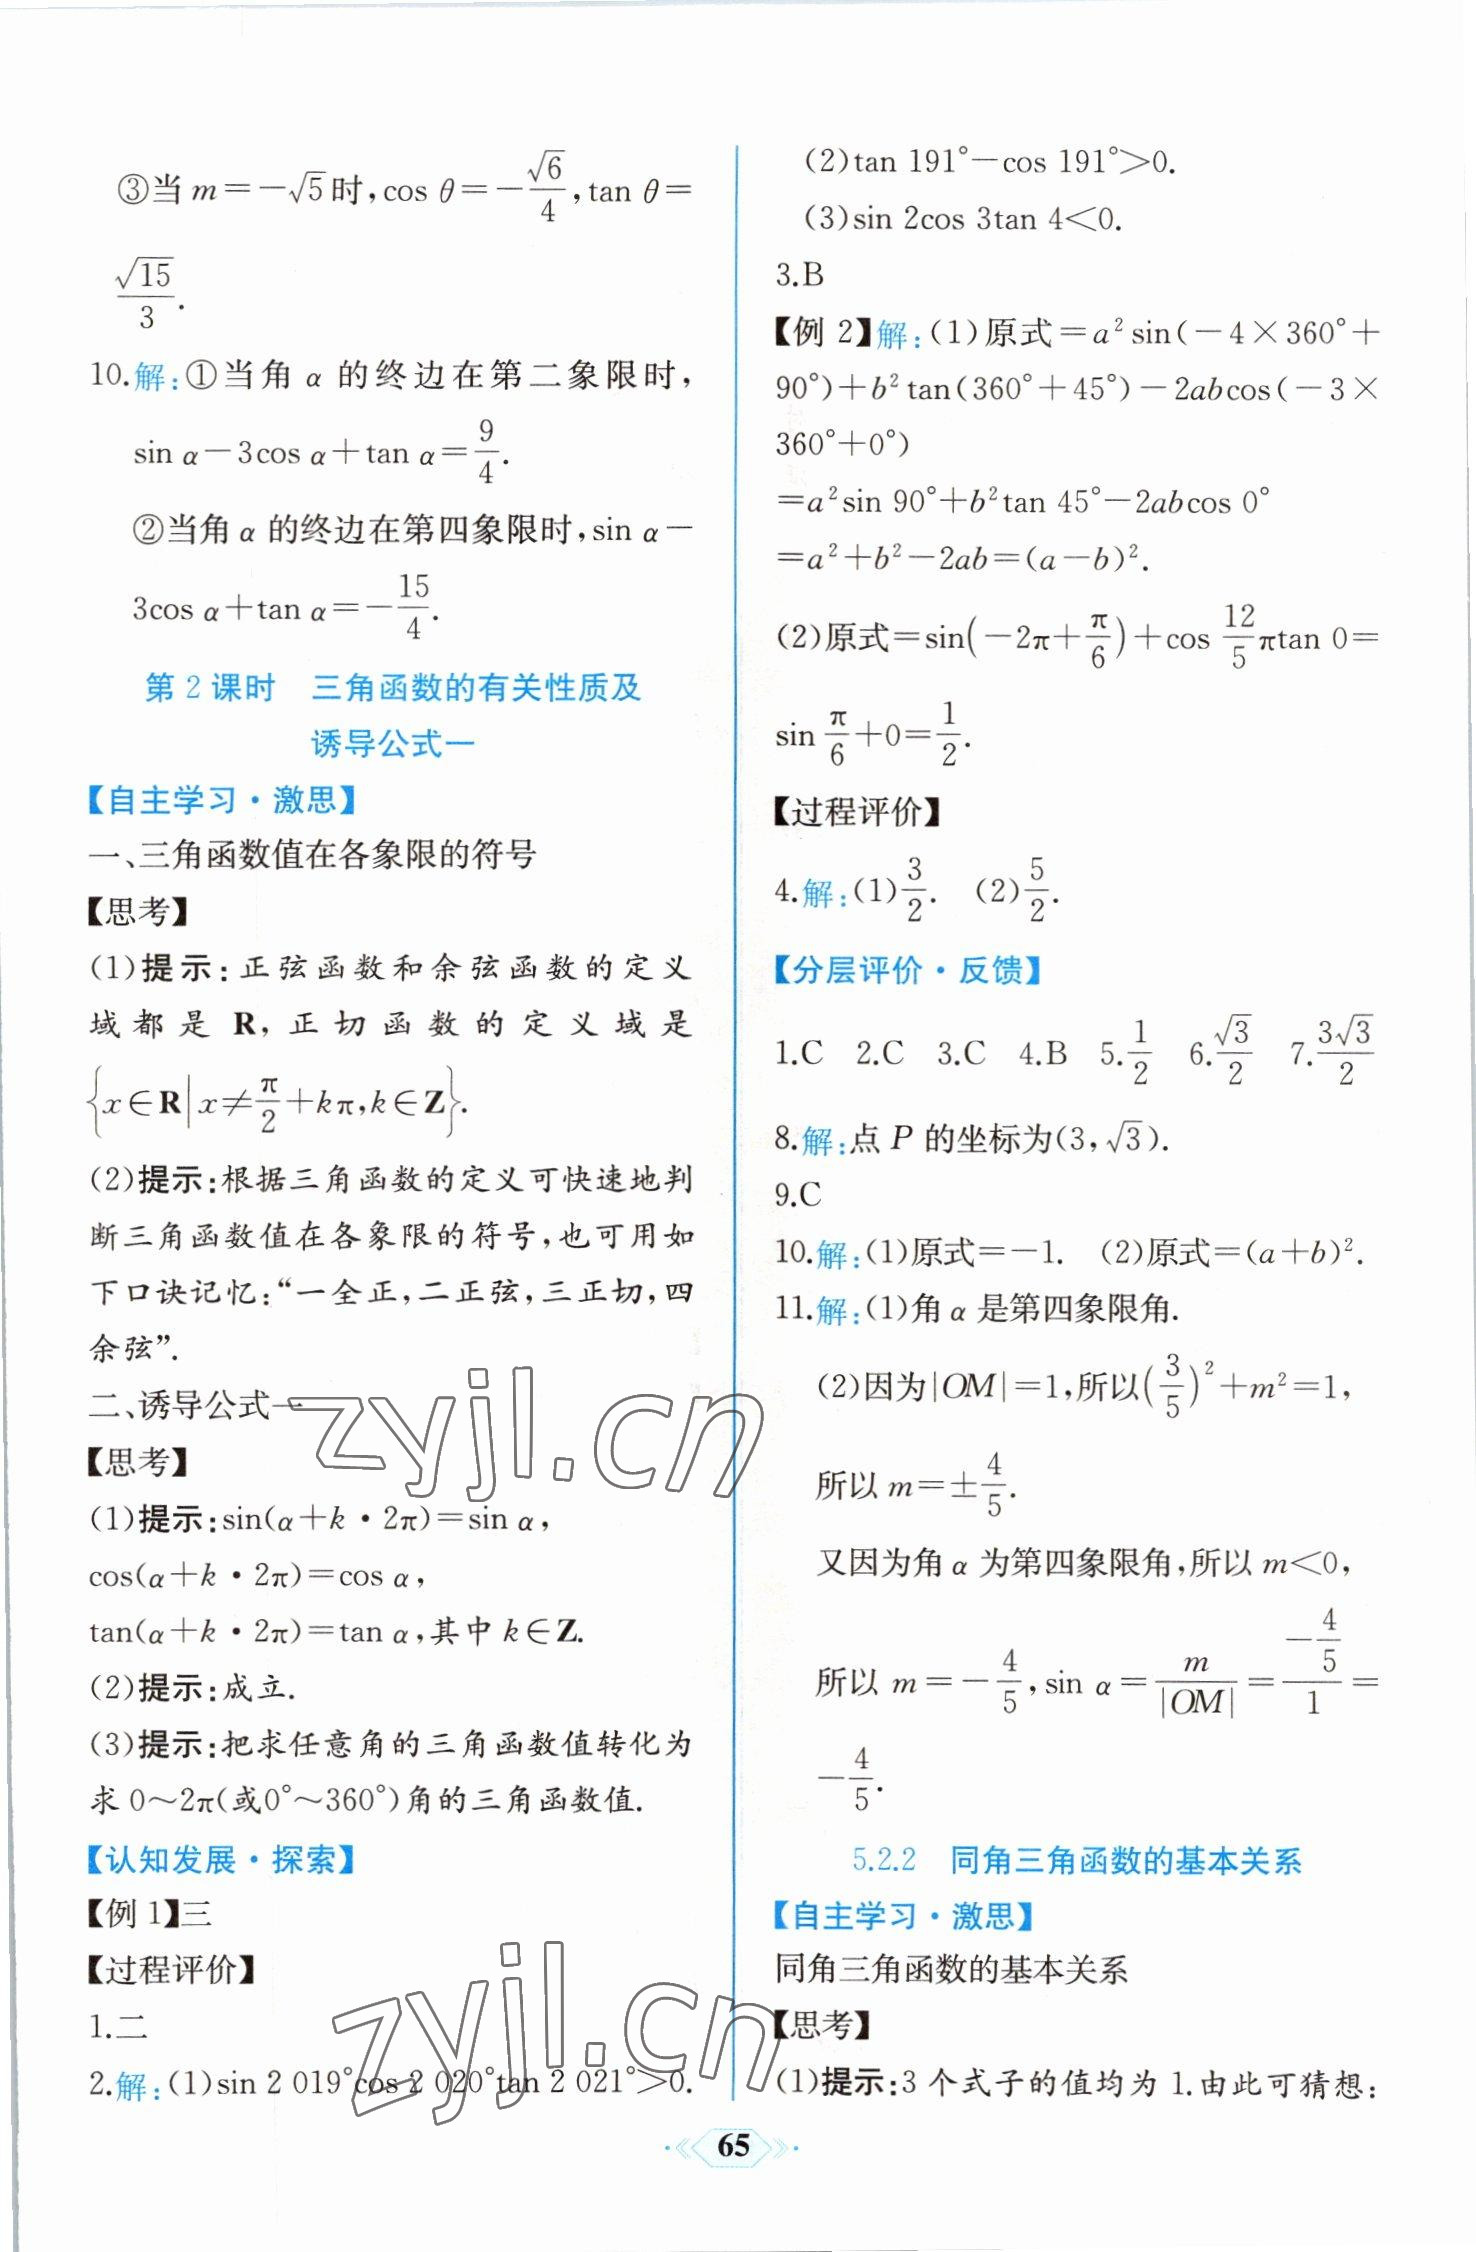 ③当 m=-√5时,cos θ=-√6/4,tan θ=
√15/3.
10.解:①当角 α 的终边在第二象限时,
sin α-3cos α+tan α=9/4.
②当角 α 的终边在第四象限时,sin α-
3cos α+tan α=-15/4.
第 2 课时 三角函数的有关性质及
诱导公式一
【自主学习·激思】
一、三角函数值在各象限的符号
【思考】
(1)提示:正弦函数和余弦函数的定义
域都是 R,正切函数的定义域是
{x∈R|x≠π/2+kπ,k∈Z}.
(2)提示:根据三角函数的定义可快速地判
断三角函数值在各象限的符号,也可用如
下口诀记忆:“一全正,二正弦,三正切,四
余弦”.
二、诱导公式一
【思考】
(1)提示:sin(α+k·2π)=sin α,
cos(α+k·2π)=cos α,
tan(α+k·2π)=tan α,其中 k∈Z.
(2)提示:成立.
(3)提示:把求任意角的三角函数值转化为
求 0~2π(或0°~360°)角的三角函数值.
【认知发展·探索】
【例 1】三
【过程评价】
1.二
2.解:(1)sin 2 019°cos 2 020°tan 2 021°>0.
(2)tan 191°-cos 191°>0.
(3)sin 2cos 3tan 4<0.
3.B
【例 2】解:(1)原式=a²sin(-4×360°+
90°)+b²tan(360°+45°)-2abcos(-3×
360°+0°)
=a²sin 90°+b²tan 45°-2abcos 0°
=a²+b²-2ab=(a-b)².
(2)原式=sin(-2π+π/6)+cos 12/5 πtan 0=
sin π/6+0=1/2.
【过程评价】
4.解:(1)3/2. (2)5/2.
【分层评价·反馈】
1.C 2.C 3.C 4.B 5.1/2 6.√3/2 7.3√3/2
8.解:点 P 的坐标为(3,√3).
9.C
10.解:(1)原式=-1. (2)原式=(a+b)².
11.解:(1)角 α 是第四象限角.
(2)因为|OM|=1,所以(3/5)²+m²=1,
所以 m=±4/5.
又因为角 α 为第四象限角,所以 m<0,
所以 m=-4/5,sin α=m/|OM|=(-4/5)/1=
-4/5.
5.2.2 同角三角函数的基本关系
【自主学习·激思】
同角三角函数的基本关系
【思考】
(1)提示:3 个式子的值均为 1.由此可猜想:
65
zyjl.cn
zyjl.cn